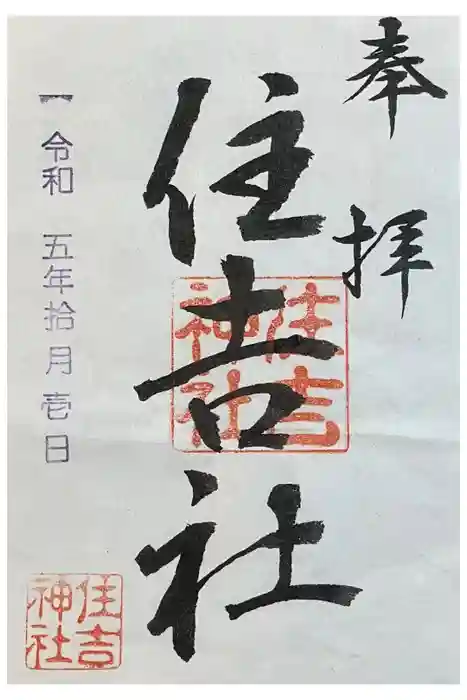 奉拝
住吉社
住吉神社
令和 五年拾月壱日
住吉神社